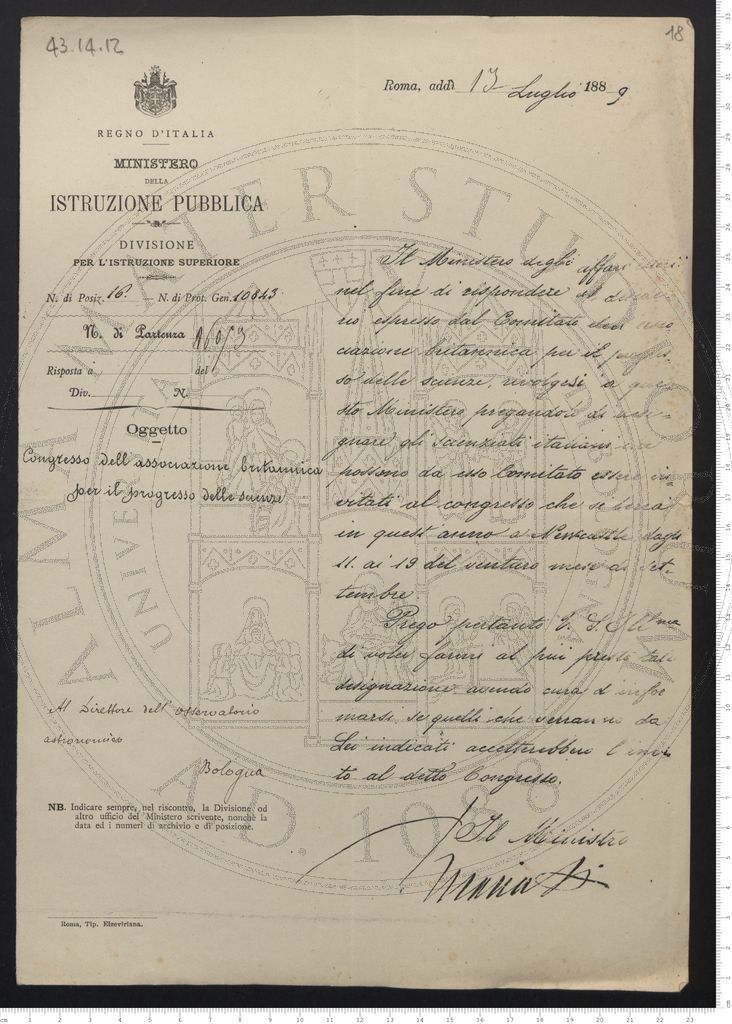 43.14.12
18
Roma, addì 13 Luglio 1889
REGNO D'ITALIA
MINISTERO
DELLA
ISTRUZIONE PUBBLICA
DIVISIONE
PER L'ISTRUZIONE SUPERIORE
N. di Posiz. 16. — N. di Prot. Gen. 10843
N. di Partenza
Risposta a del
Div. N.
Oggetto
Congresso dell'associazione britannica
per il progresso delle scienze
Il Ministero degli affari esteri
nel fine di rispondere al deside-
rio espresso dal Comitato
ciazione britannica per il progres-
so delle scienze, rivolgesi a que-
sto Ministero pregandolo di
gnare gli scienziati italiani
possono da esso Comitato essere in
vitati al congresso che si terrà
in quest'anno a Newcastle dagli
11. ai 19 del venturo mese di Set-
tembre
Prego pertanto V. S. Ill.ma
di voler farmi al più presto tale
designazione, avendo cura d'infor
marsi, se quelli che verranno da
Lei indicati accetterebbero l'invi-
to al detto Congresso.
Al Direttore dell'osservatorio
astronomico
Bologna
NB. Indicare sempre, nel riscontro, la Divisione od
altro ufficio del Ministero scrivente, nonchè la
data ed i numeri di archivio e di posizione.
Il Ministro
Roma, Tip. Elzeviriana.
ALMA MATER STUDIORUM
A.D. 1088